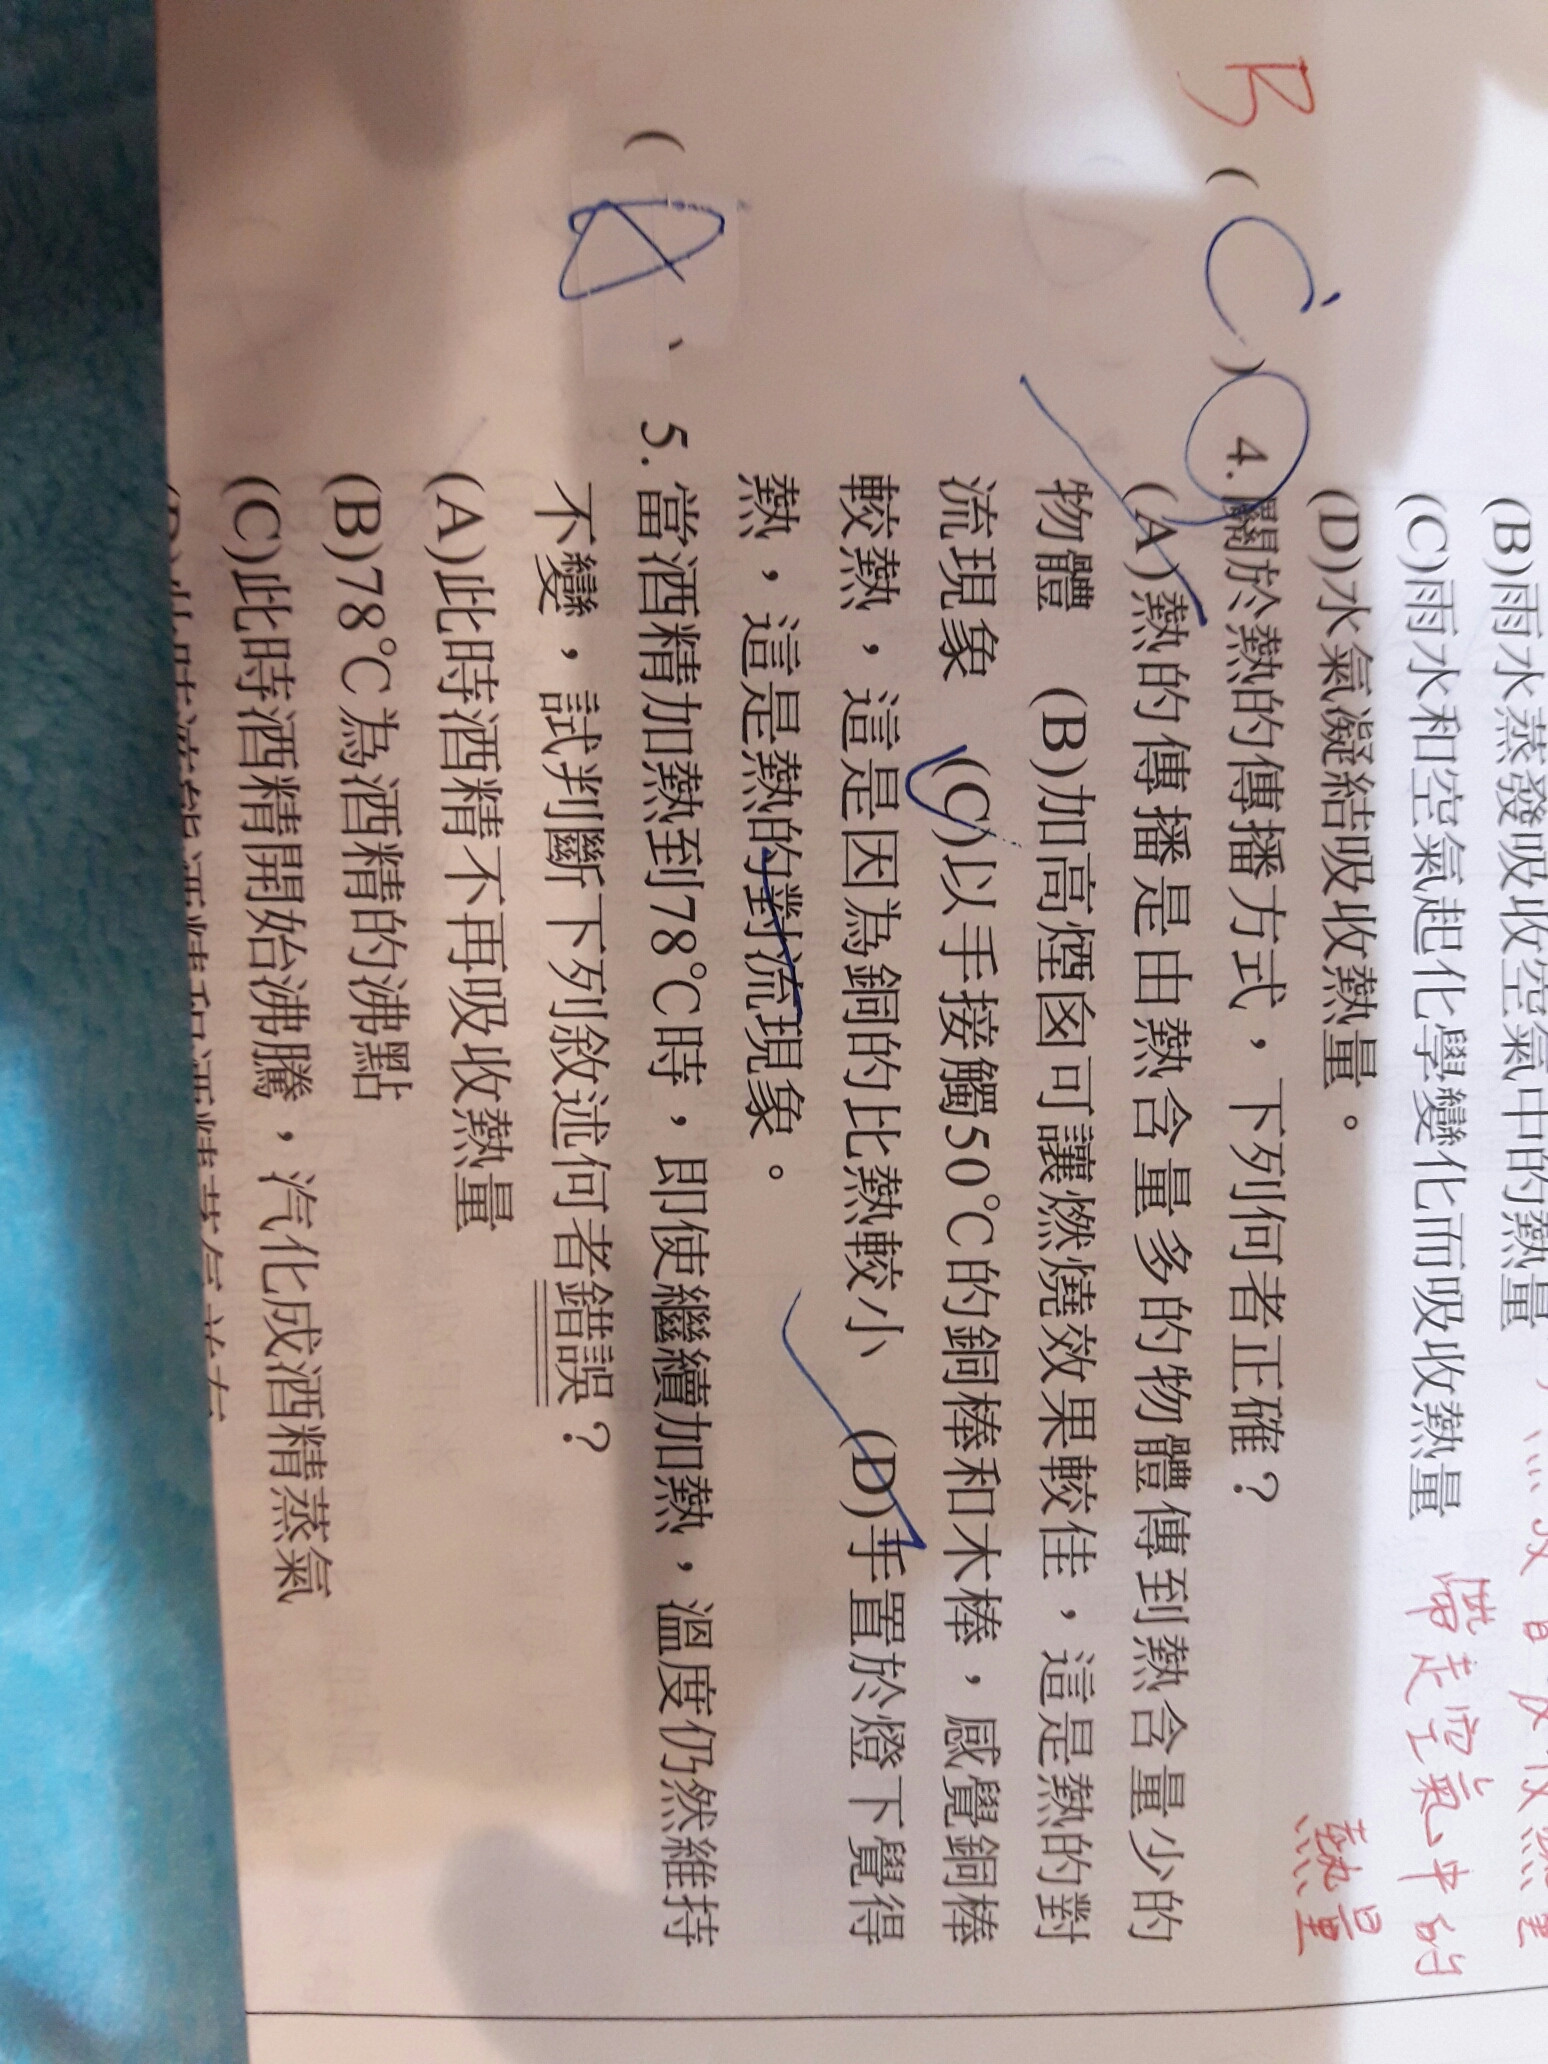 (B)雨水蒸發吸收空氣中的熱量
(C)雨水和空氣起化學變化而吸收熱量
帶走空氣中的
熱量
(D)水氣凝結吸收熱量。
B ( C ) 4.關於熱的傳播方式，下列何者正確？
(A)熱的傳播是由熱含量多的物體傳到熱含量少的
物體 (B)加高煙囪可讓燃燒效果較佳，這是熱的對
流現象 (C)以手接觸50℃的銅棒和木棒，感覺銅棒
較熱，這是因為銅的比熱較小 (D)手置於燈下覺得
熱，這是熱的對流現象。
( A 5.當酒精加熱到78℃時，即使繼續加熱，溫度仍然維持
不變，試判斷下列敘述何者錯誤？
(A)此時酒精不再吸收熱量
(B)78℃為酒精的沸點
(C)此時酒精開始沸騰，汽化成酒精蒸氣